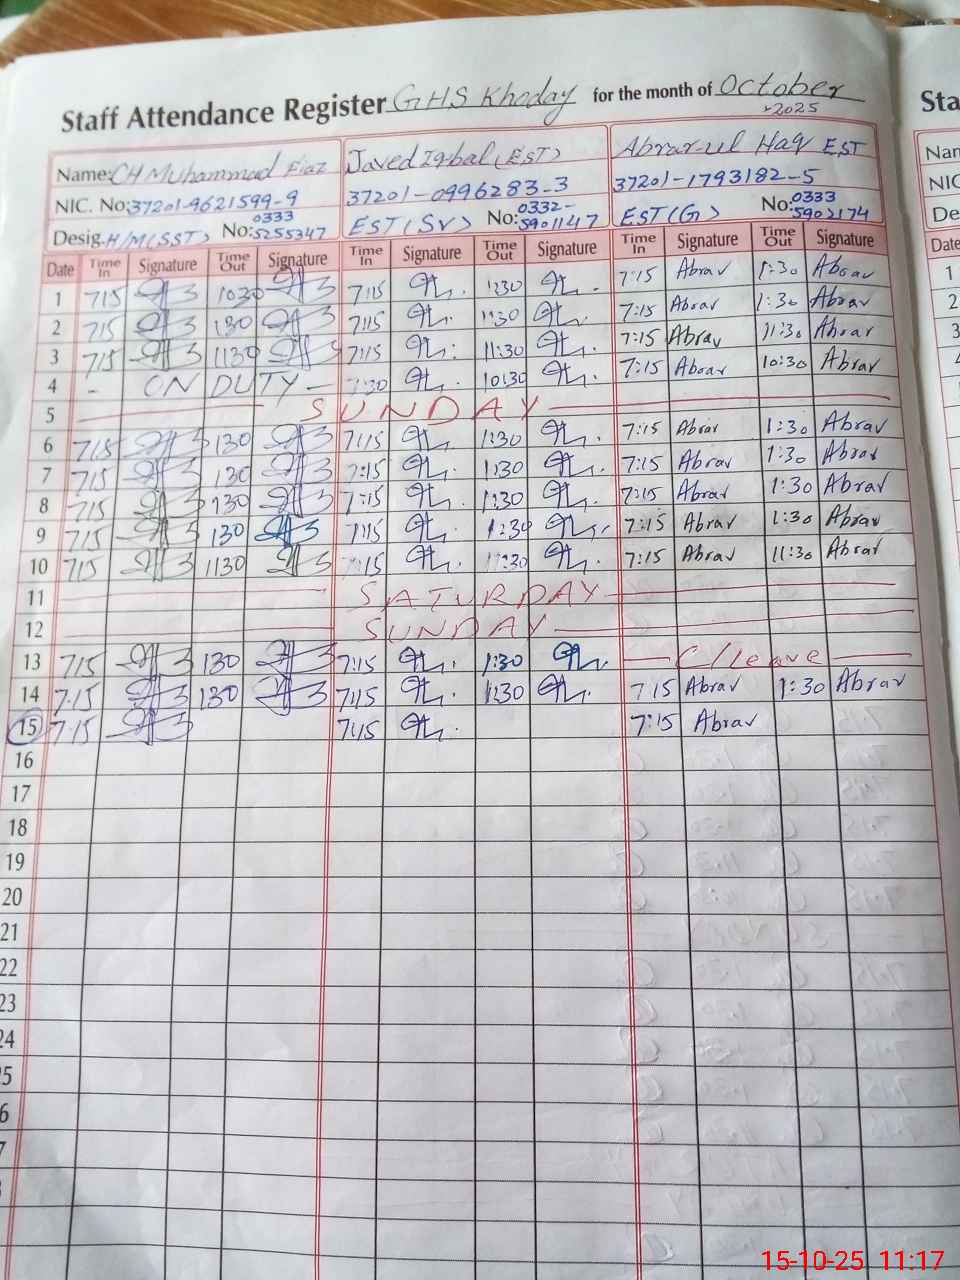 Staff Attendance Register GHS Khoday for the month of October
2025
Name: CH Muhammad Fiaz Javed Iqbal (EST) Abrar-ul Haq EST
NIC. No: 37201-9621599-9 37201-0996283-3 37201-1793182-5
Desig. H/M(SST) No: 0333 5255347 EST(SV) No: 0332- 5901147 EST(G) No: 0333 5902174
Date Time In Signature Time Out Signature Time In Signature Time Out Signature Time In Signature Time Out Signature
1 715 1030 7:15 1:30 7:15 Abrar 1:30 Abrar
2 715 130 7:15 1:30 7:15 Abrar 1:30 Abrar
3 715 1130 7:15 11:30 7:15 Abrar 11:30 Abrar
4 - ON DUTY - 7:30 10:30 7:15 Abrar 10:30 Abrar
5 SUNDAY
6 715 130 7:15 1:30 7:15 Abrar 1:30 Abrar
7 715 130 7:15 1:30 7:15 Abrar 1:30 Abrar
8 715 130 7:15 1:30 7:15 Abrar 1:30 Abrar
9 715 130 7:15 1:30 7:15 Abrar 1:30 Abrar
10 715 1130 7:15 11:30 7:15 Abrar 11:30 Abrar
11 SATURDAY
12 SUNDAY
13 715 130 7:15 1:30 C/Leave
14 7:15 130 7:15 1:30 7:15 Abrar 1:30 Abrar
15 7:15 7:15 7:15 Abrar
16
17
18
19
20
21
22
23
24
5
6
7
Sta
Nam
NIC
De
Date
1
2
3
15-10-25 11:17